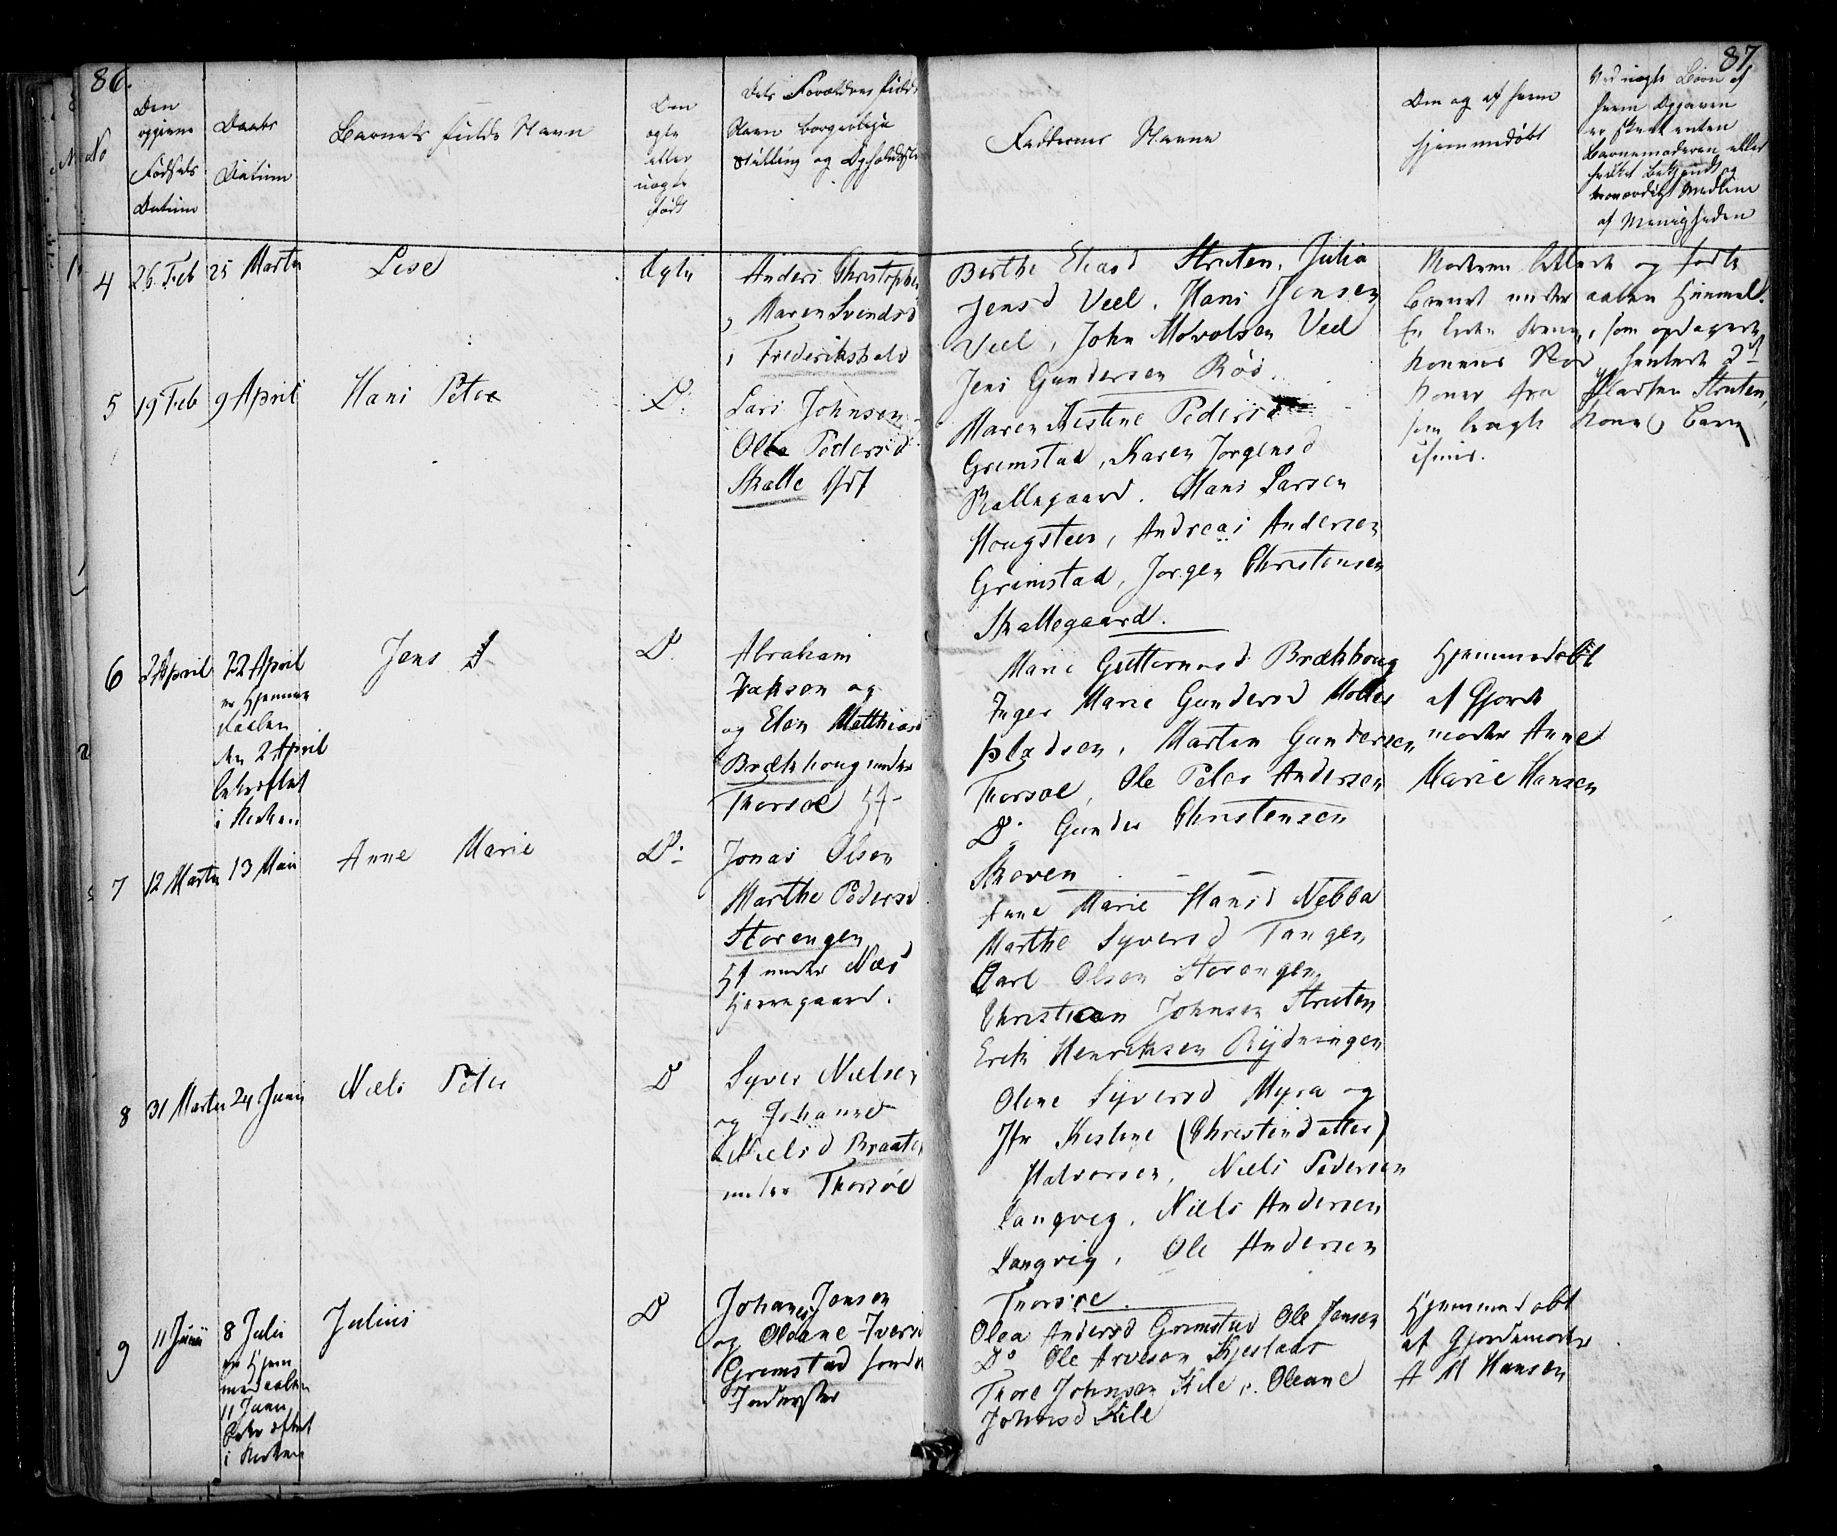 86.
87
No
Den
opgivne
Fødsels
Datum
Daabs
Datum
Barnets fulde Navn
Om
ægte
eller
uægte
født
Dets Forældres fulde
Navn borgerlige
Stilling og Opholdsste
Faddernes Navne
Om og af hvem
hjemmedøbt
Ved uægte Børn af
hvem Opgaven
er skeet enten
Barnemoderen eller
troværdigt Medlem
af Menigheden
4
26 Feb
25 Marts
Lise
Ægte
Anders Christophe
Maren Svendsd
i Frederikshald
Berthe Eliasd Struten, Julia
Jensd Veel, Hans Jensen
Veel, John Veel
Jens Gundersen Röd.
Moderen og fødte
Barnet under aaben Himmel.
som opdagede
Konens hentede 2de
Koner fra Pladsen Struten,
som bragte Kone og Barn
5
19 Feb
9 April
Hans Peter
D.
Lars Johnsen
Olea Pedersd
Skalle
Maren Kestine Pedersd
Gremstad, Karen Jørgensd
Kallegaard. Hans Larsen
Hougsteen, Andreas Andersen
Gremstad, Jørgen Christensen
Skallegaard.
6
2 April
22 April
er Hjemme
daaben
den 2 April
bekræftet
i Kirken
Jens
D.
Abraham
og
og Elen Matthiasd
Brækhoug under
Thorsøe
Marie Guttormsd Brækhoug
Inger Marie Gundersd Möller
pladsen, Marten Gundersen
Thorsøe, Ole Peter Andersen
Do. Gunder Christensen
Skoven
Hjemmedøbt
af Gjorde
moder Anne
Marie Hansen
7
12 Marts
13 Mai
Anne Marie
D.
Jonas Olsen
Marthe Pedersd
Storengen
under Næs
Herregaard.
Anne Marie Hansd Nebba
Marthe Syversd Tangen
Carl Olsen Storengen
Christian Johnsen Struten
Erik Henriksen Rydningen
8
31 Marts
24 Juni
Niels Peter
D
Syver Nielsen
og Johanne
Nielsd Braaten
under Thorsøe
Olene Syversd Myra og
Jfr Kestine (Christensdatter)
Halvorsen, Niels Pedersen
Langvig, Niels Andersen
Langvig, Ole Andersen
Thorsøe.
9
11 Juni
8 Juli
er Hjem
medaaben
11 Juni
bekræftet
i Kirken
Julius
D
Johannes Jensen
og Oleane Iversd
Gremstad
Inderster
Olea Andersd Gremstad Ole Jensen
Do Ole Arvesen Kjeslaas
Thore Johnsen Kile, Oleane
Johnsd Kile
Hjemmedøbt
af Gjordemoder
A M Hansen